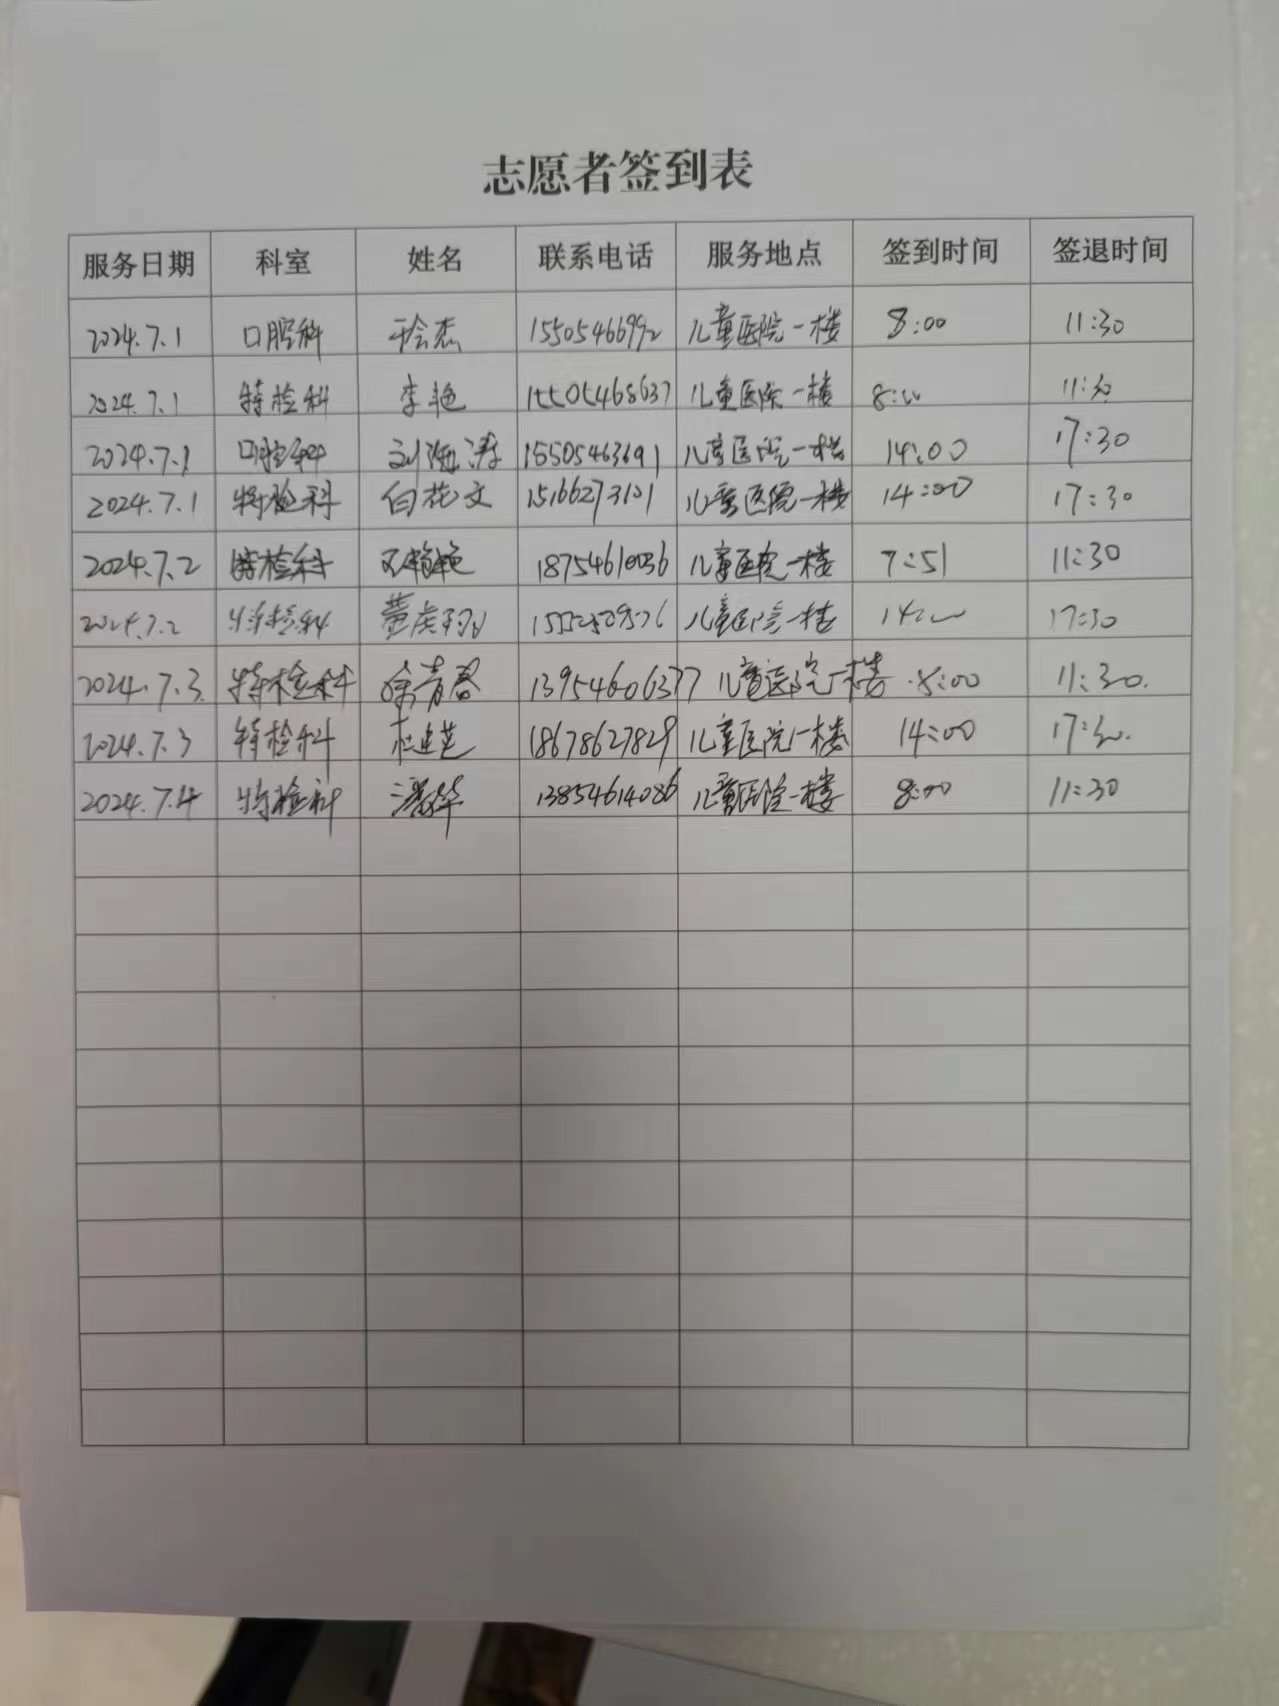 志愿者签到表
服务日期 科室 姓名 联系电话 服务地点 签到时间 签退时间
2024.7.1 口腔科 15505466992 儿童医院一楼 8:00 11:30
2024.7.1 特检科 李艳 15505468637 儿童医院一楼 8:00 11:30
2024.7.1 口腔科 刘海涛 15505463691 儿童医院一楼 14:00 17:30
2024.7.1 特检科 白花文 15166273101 儿童医院一楼 14:00 17:30
2024.7.2 特检科 18754610036 儿童医院一楼 7:51 11:30
2024.7.2 特检科 儿童医院一楼 14:00 17:30
2024.7.3 特检科 徐青春 13954606377 儿童医院一楼 8:00 11:30.
2024.7.3 特检科 杜建芝 18678627829 儿童医院一楼 14:00 17:30.
2024.7.4 特检科 13854614086 儿童医院一楼 8:00 11:30